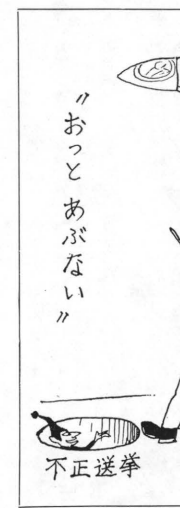 〃おっとあぶない〃
不正送挙